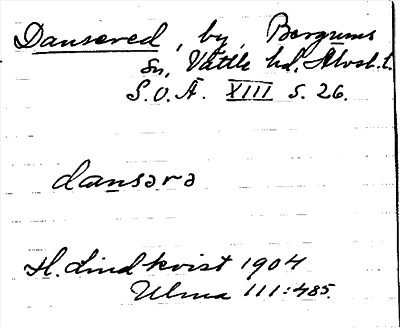 Dansered, by, Bergums
sn, Vättle hd, Älvsb. l.
S.O.Ä. XIII s. 26.
dansərə
H. Lindkvist 1904
Ulma 111:485.